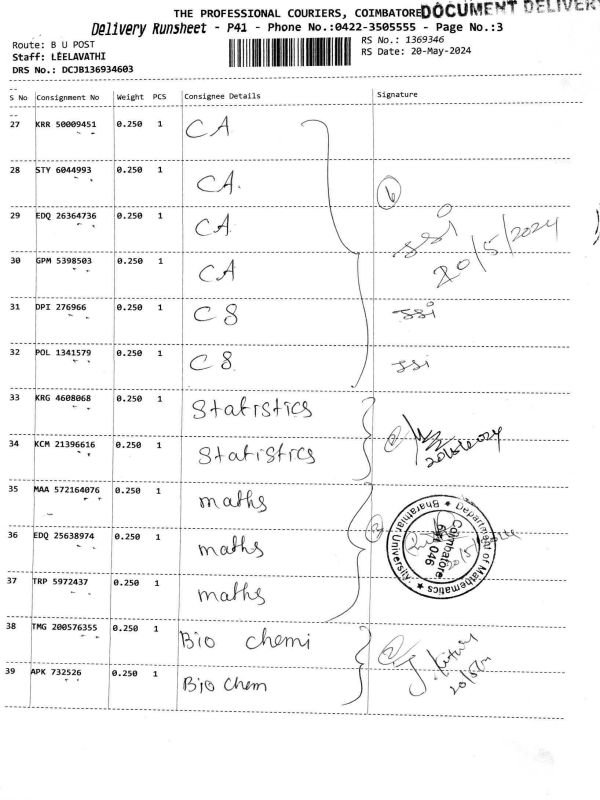 THE PROFESSIONAL COURIERS, COIMBATORE DOCUMENT DELIVERY
Delivery Runsheet - P41 - Phone No.:0422-3505555 - Page No.:3
Route: B U POST
RS No.: 1369346
Staff: LEELAVATHI
RS Date: 20-May-2024
DRS No.: DCJB136934603
S No Consignment No Weight PCS Consignee Details Signature
27 KRR 50009451 0.250 1 CA
28 STY 6044993 0.250 1 CA.
6
29 EDQ 26364736 0.250 1 CA
ssi
20/5/2024
30 GPM 5398503 0.250 1 CA
31 DPI 276966 0.250 1 CS ssi
32 POL 1341579 0.250 1 CS ssi
33 KRG 4608068 0.250 1 Statistics
34 KCM 21396616 0.250 1 Statistics
2
35 MAA 572164076 0.250 1 maths
36 EDQ 25638974 0.250 1 maths
Department of Mathematics
Bharathiar University
Coimbatore
641 046
37 TRP 5972437 0.250 1 maths
38 TMG 200576355 0.250 1 Bio chemi
2
39 APK 732526 0.250 1 Bio chem